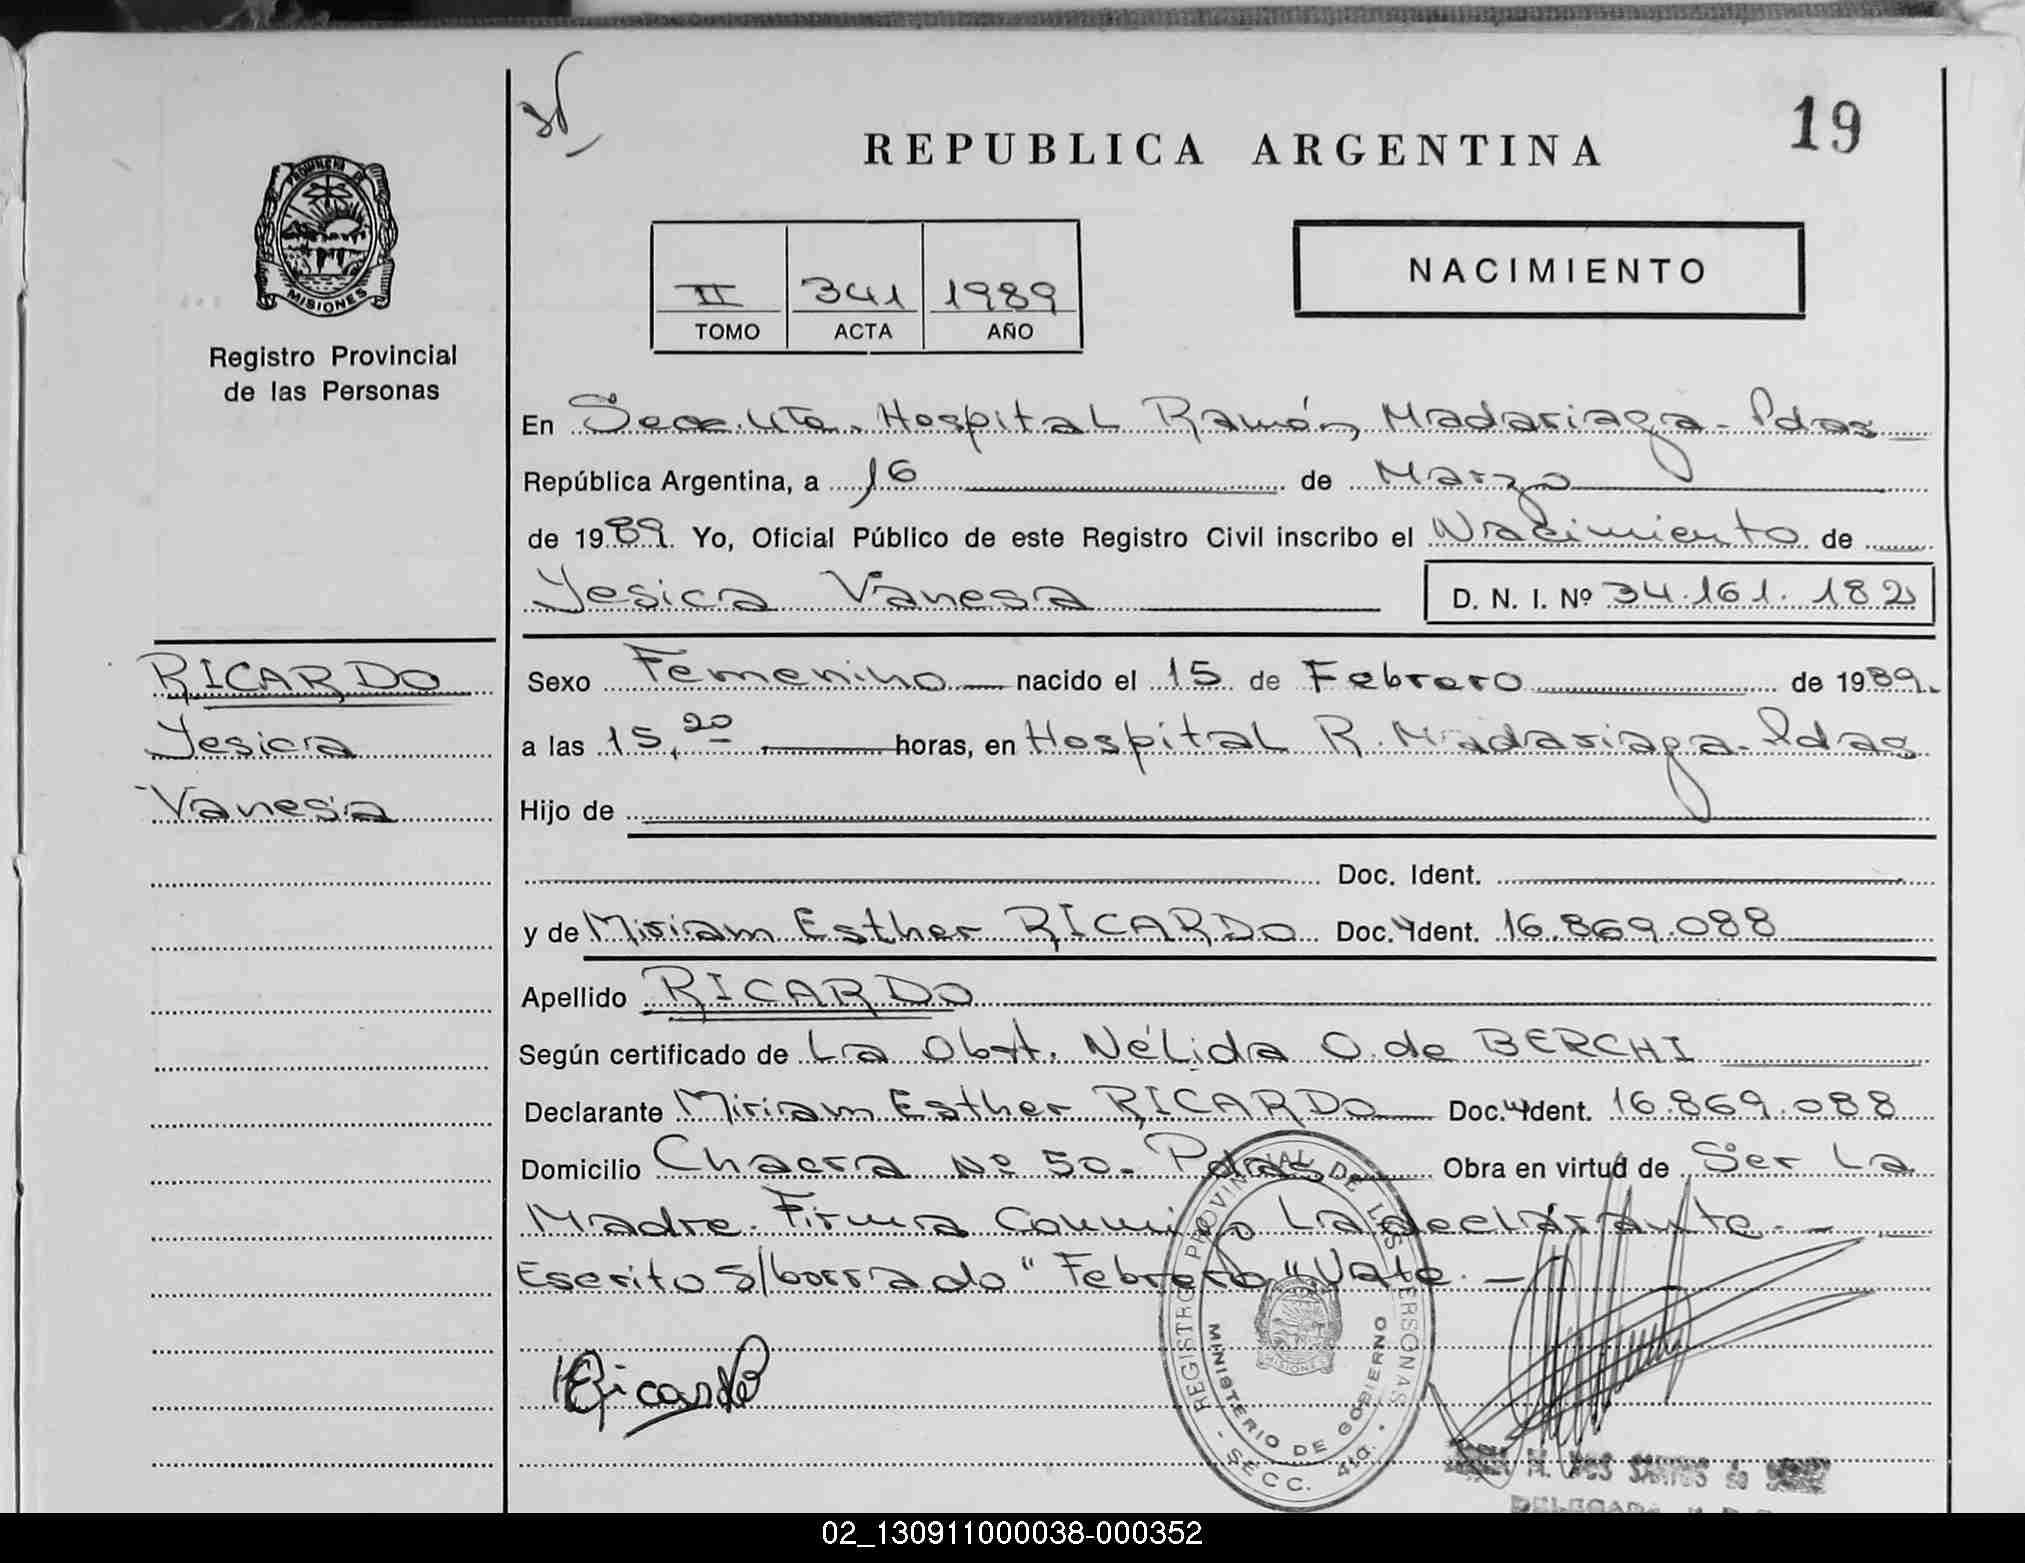 19
REPUBLICA ARGENTINA
PROVINCIA DE
MISIONES
Registro Provincial
de las Personas
II 341 1989
TOMO ACTA AÑO
NACIMIENTO
En Secc. 4ta. Hospital Ramón Madariaga - Pdas
República Argentina, a 16 de Marzo
de 1989. Yo, Oficial Público de este Registro Civil inscribo el Nacimiento de
Yesica Vanesa D. N. I. Nº 34.161.182
RICARDO
Yesica
Vanesa
Sexo Femenino nacido el 15 de Febrero de 1989.
a las 15,20 horas, en Hospital R. Madariaga - Pdas
Hijo de
Doc. Ident.
y de Miriam Esther RICARDO Doc. Ident. 16.869.088
Apellido RICARDO
Según certificado de La Obst. Nélida O. de BERCHI
Declarante Miriam Esther RICARDO Doc. Ident. 16.869.088
Domicilio Chacra Nº 50 - Pdas Obra en virtud de Ser La
Madre. Firma Conmigo La declarante. -
Escrito s/borrado "Febrero" Vale. -
Ricardo
REGISTRO PROVINCIAL DE LAS PERSONAS
MINISTERIO DE GOBIERNO
MISIONES
- SECC. 4ta. -
M. DOS SANTOS de
02_130911000038-000352